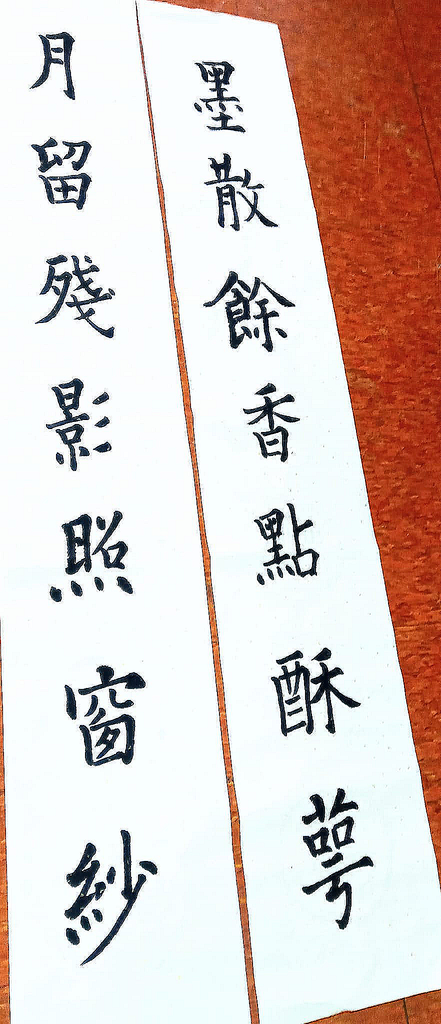 墨散餘香點酥萼
月留殘影照窗紗